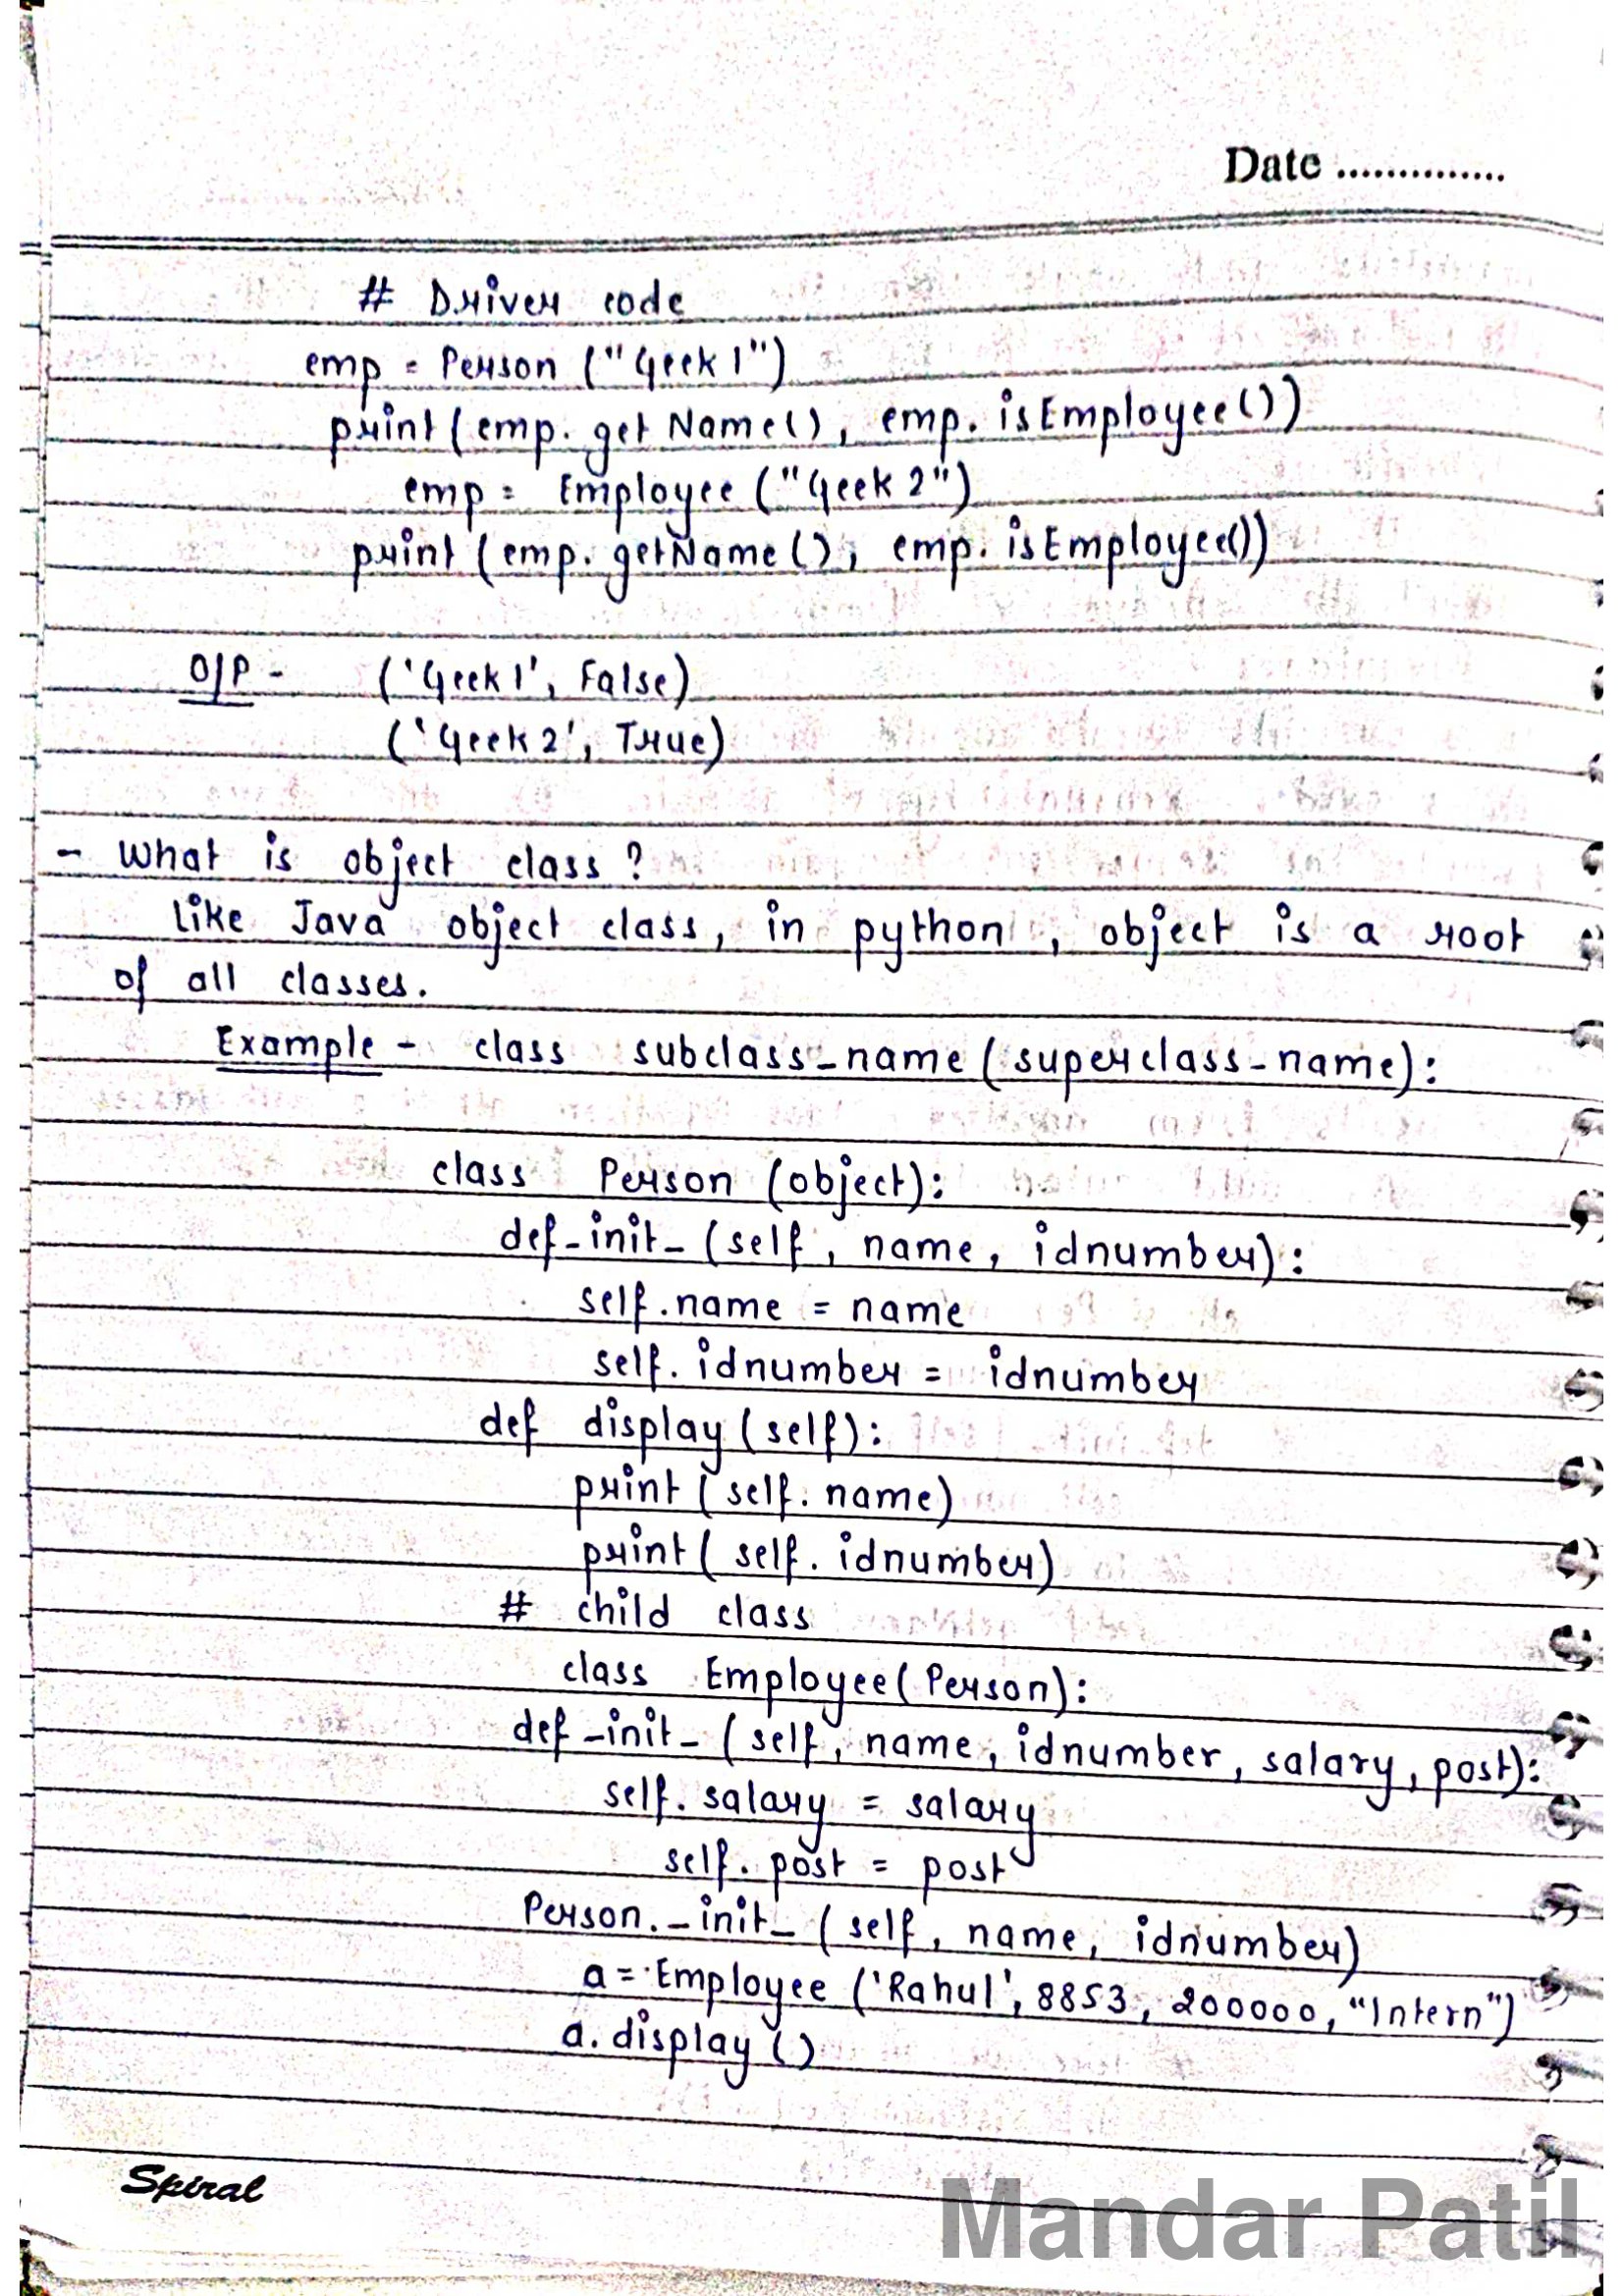 Date ..............
# Driver code
emp = Person ("Geek 1")
print (emp. get Name(), emp. isEmployee())
emp = Employee ("Geek 2")
print (emp. getName (), emp. isEmployee())
O/P - ('Geek 1', False)
('Geek 2', True)
- What is object class ?
Like Java object class, in python , object is a root
of all classes.
Example - class subclass_name (superclass_name):
class Person (object):
def _init_ (self , name, idnumber):
self.name = name
self. idnumber = idnumber
def display (self):
print (self. name)
print ( self. idnumber)
# child class
class Employee( Person):
def _init_ ( self, name, idnumber, salary, post):
self. salary = salary
self. post = post
Person._init_ ( self, name, idnumber)
a = Employee ('Rahul', 8853, 200000, "Intern")
a. display ()
Spiral
Mandar Patil